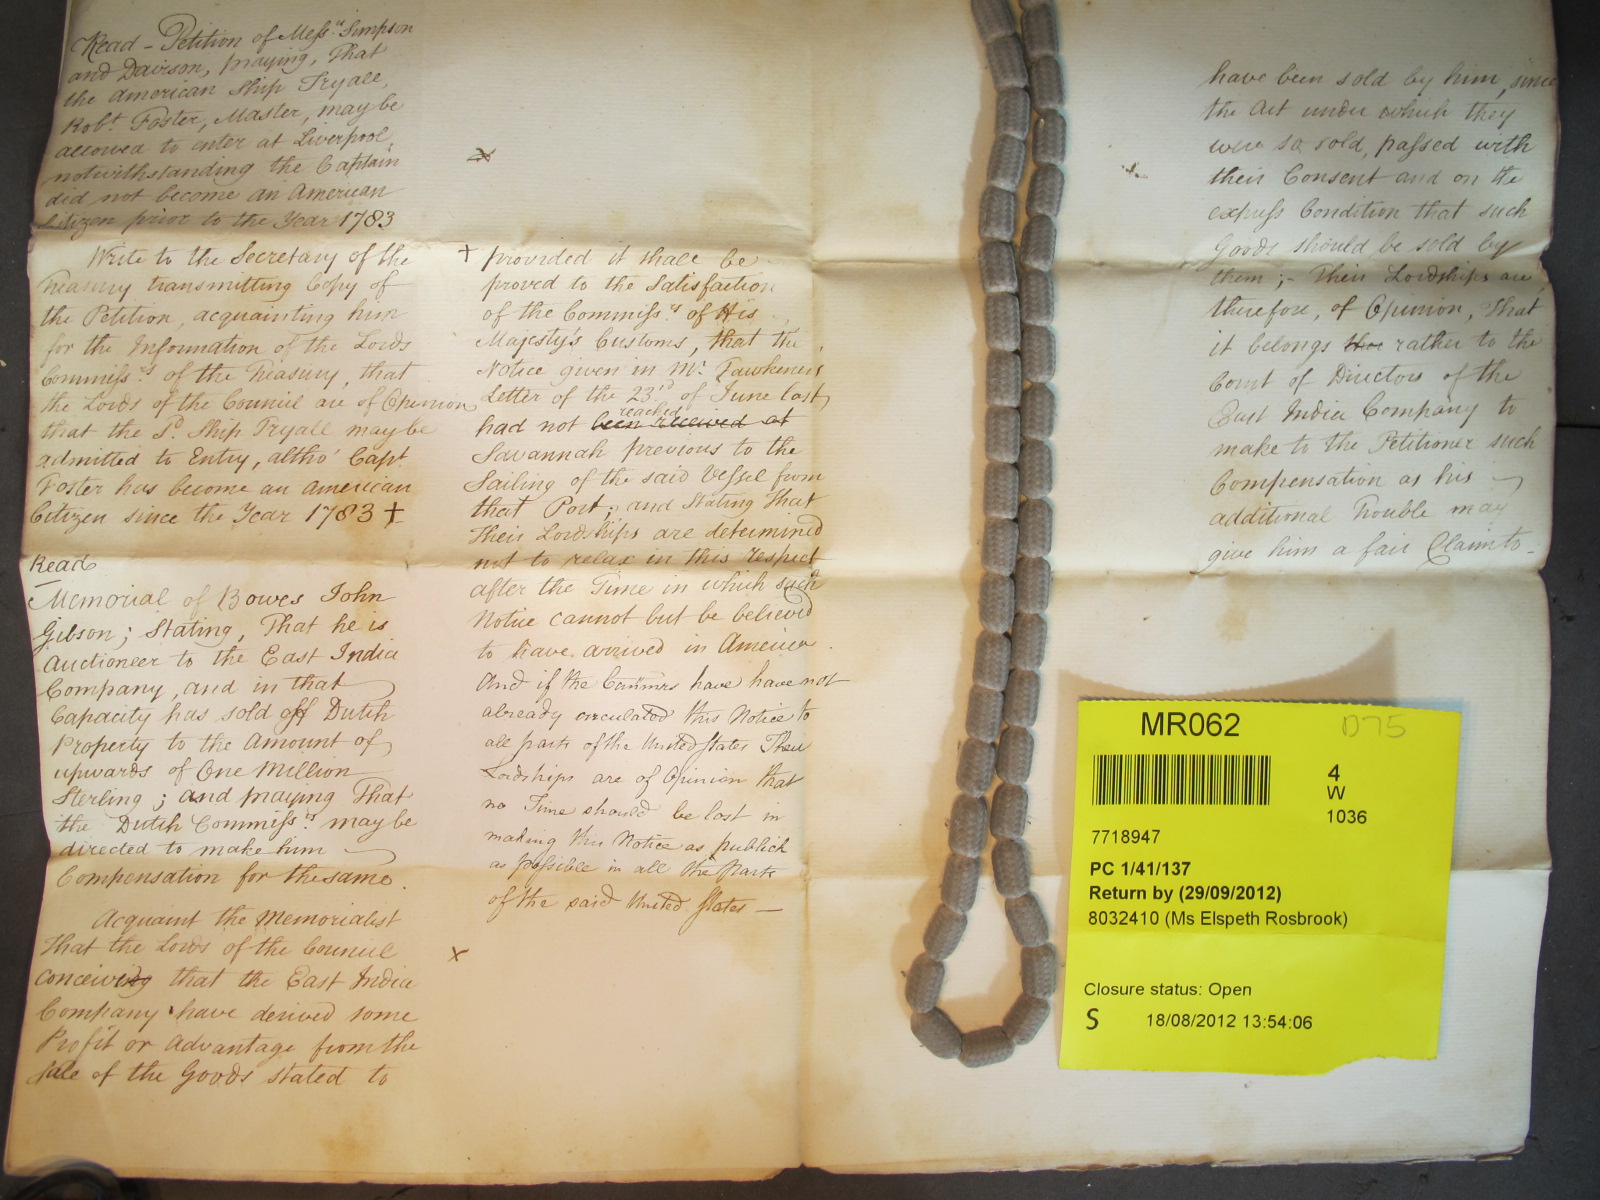 Read – Petition of Messrs Simpson
and Davison, praying, That
the American Ship Tryall,
Robt. Foster, Master, may be
allowed to enter at Liverpool,
notwithstanding the Captain
did not become an American
Citizen prior to the Year 1783
Write to the Secretary of the
Treasury transmitting Copy of
the Petition, acquainting him
for the Information of the Lords
Commissrs of the Treasury, that
the Lords of the Council are of Opinion
that the Sd. Ship Tryall may be
admitted to Entry, altho' Capt.
Foster has become an American
Citizen since the Year 1783 +
Read
Memorial of Bowes John
Gibson; Stating, That he is
Auctioneer to the East India
Company, and in that
Capacity has sold off Dutch
Property to the Amount of
upwards of One Million
Sterling; and praying That
the Dutch Commissrs. may be
directed to make him
Compensation for the same.
Acquaint the Memorialist
That the Lords of the Council
conceiving that the East India
Company have derived some
Profit or Advantage from the
Sale of the Goods stated to
x
+ provided it shall be
proved to the Satisfaction
of the Commissrs of His
Majesty's Customs, that the
Notice given in Mr. Fawkener's
Letter of the 23rd of June last,
reached
had not been received at
Savannah previous to the
Sailing of the said Vessel from
that Port; and Stating That
Their Lordships are determined
not to relax in this respect
after the Time in which such
Notice cannot but be believed
to have arrived in America.
And if the Commrs have have not
already circulated this Notice to
all parts of the United States Their
Lordships are of Opinion that
no Time should be lost in
making this Notice as publick
as possible in all the Parts
of the said United States —
x
have been sold by him, since
the Act under which they
were so sold, passed with
their Consent and on the
express Condition that such
Goods should be sold by
them; – Their Lordships are,
therefore, of Opinion, That
it belongs rather to the
Court of Directors of the
East India Company to
make to the Petitioner such
Compensation as his
additional Trouble may
give him a fair Claim to –
MR062
D75
4
W
1036
7718947
PC 1/41/137
Return by (29/09/2012)
8032410 (Ms Elspeth Rosbrook)
Closure status: Open
S 18/08/2012 13:54:06